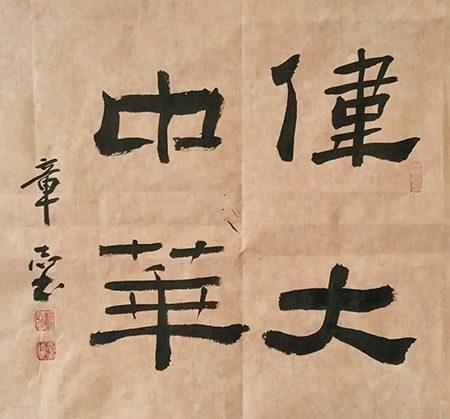 偉大
中華
章